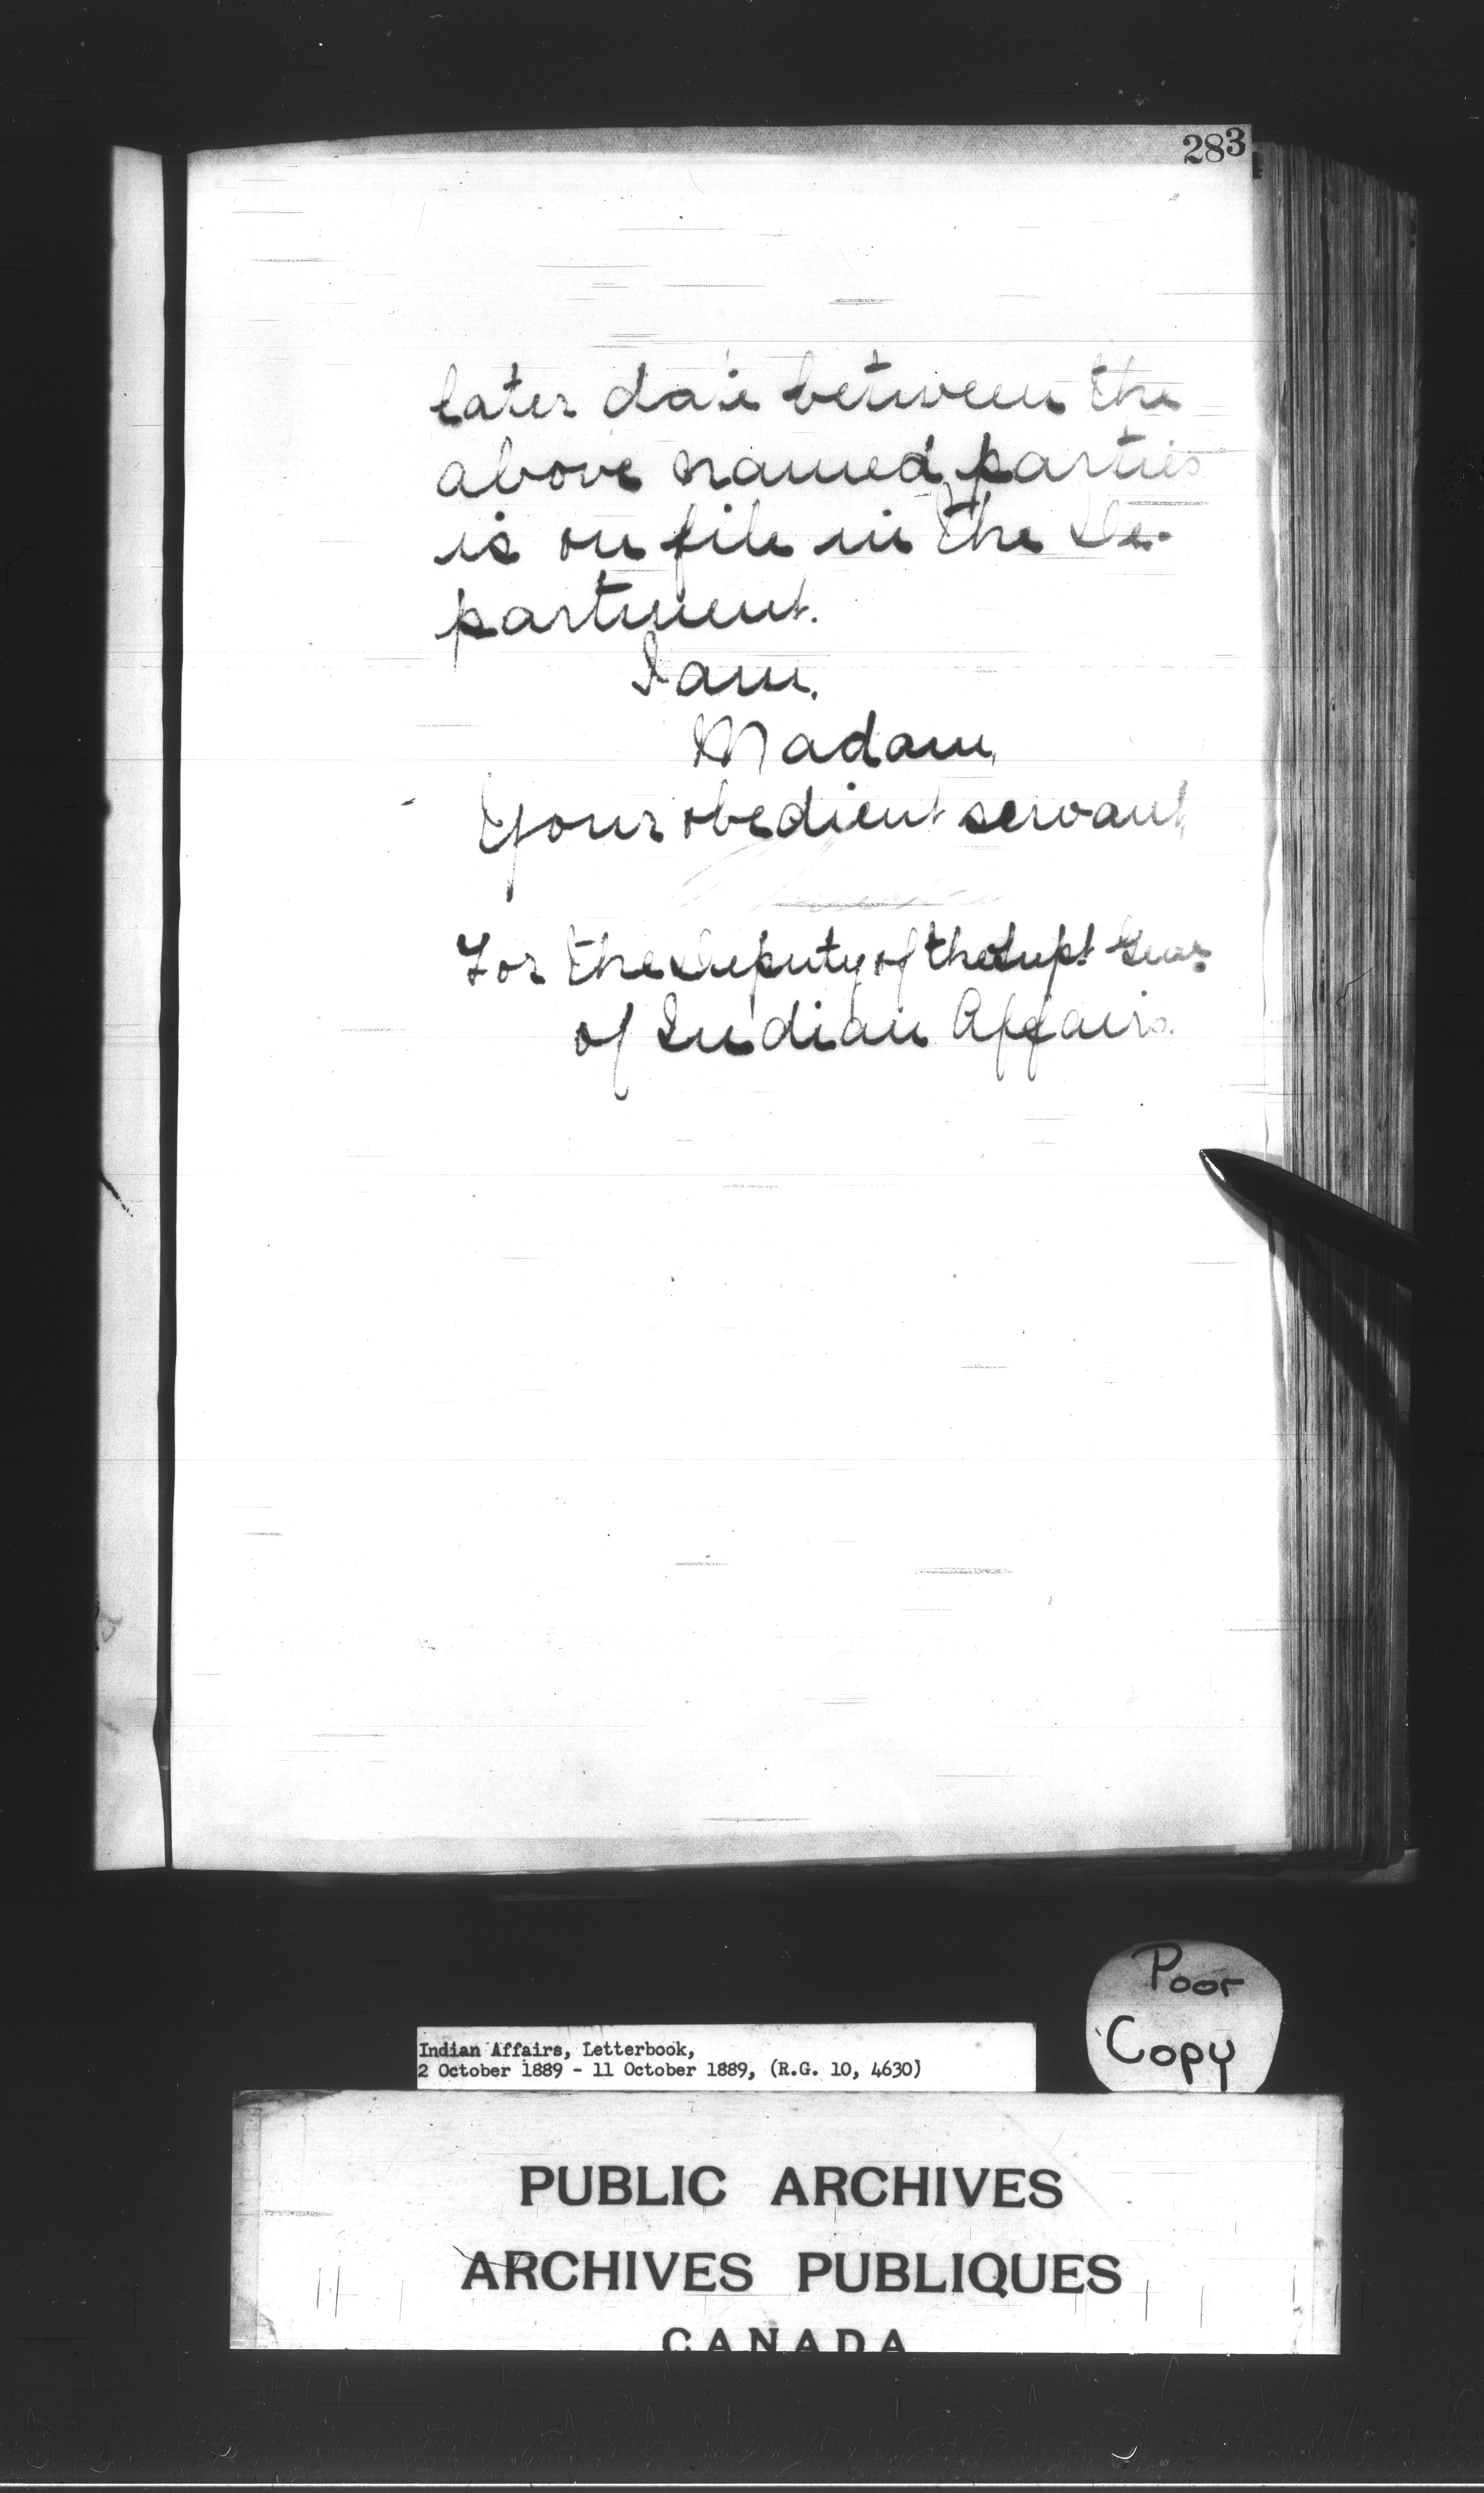 283
later date between the
above named parties
is on file in the De-
partment.
I am,
Madam,
Your obedient servant,
For the Deputy of the Supt Genl
of Indian Affairs.
Poor
Copy
Indian Affairs, Letterbook,
2 October 1889 - 11 October 1889, (R.G. 10, 4630)
PUBLIC ARCHIVES
ARCHIVES PUBLIQUES
CANADA